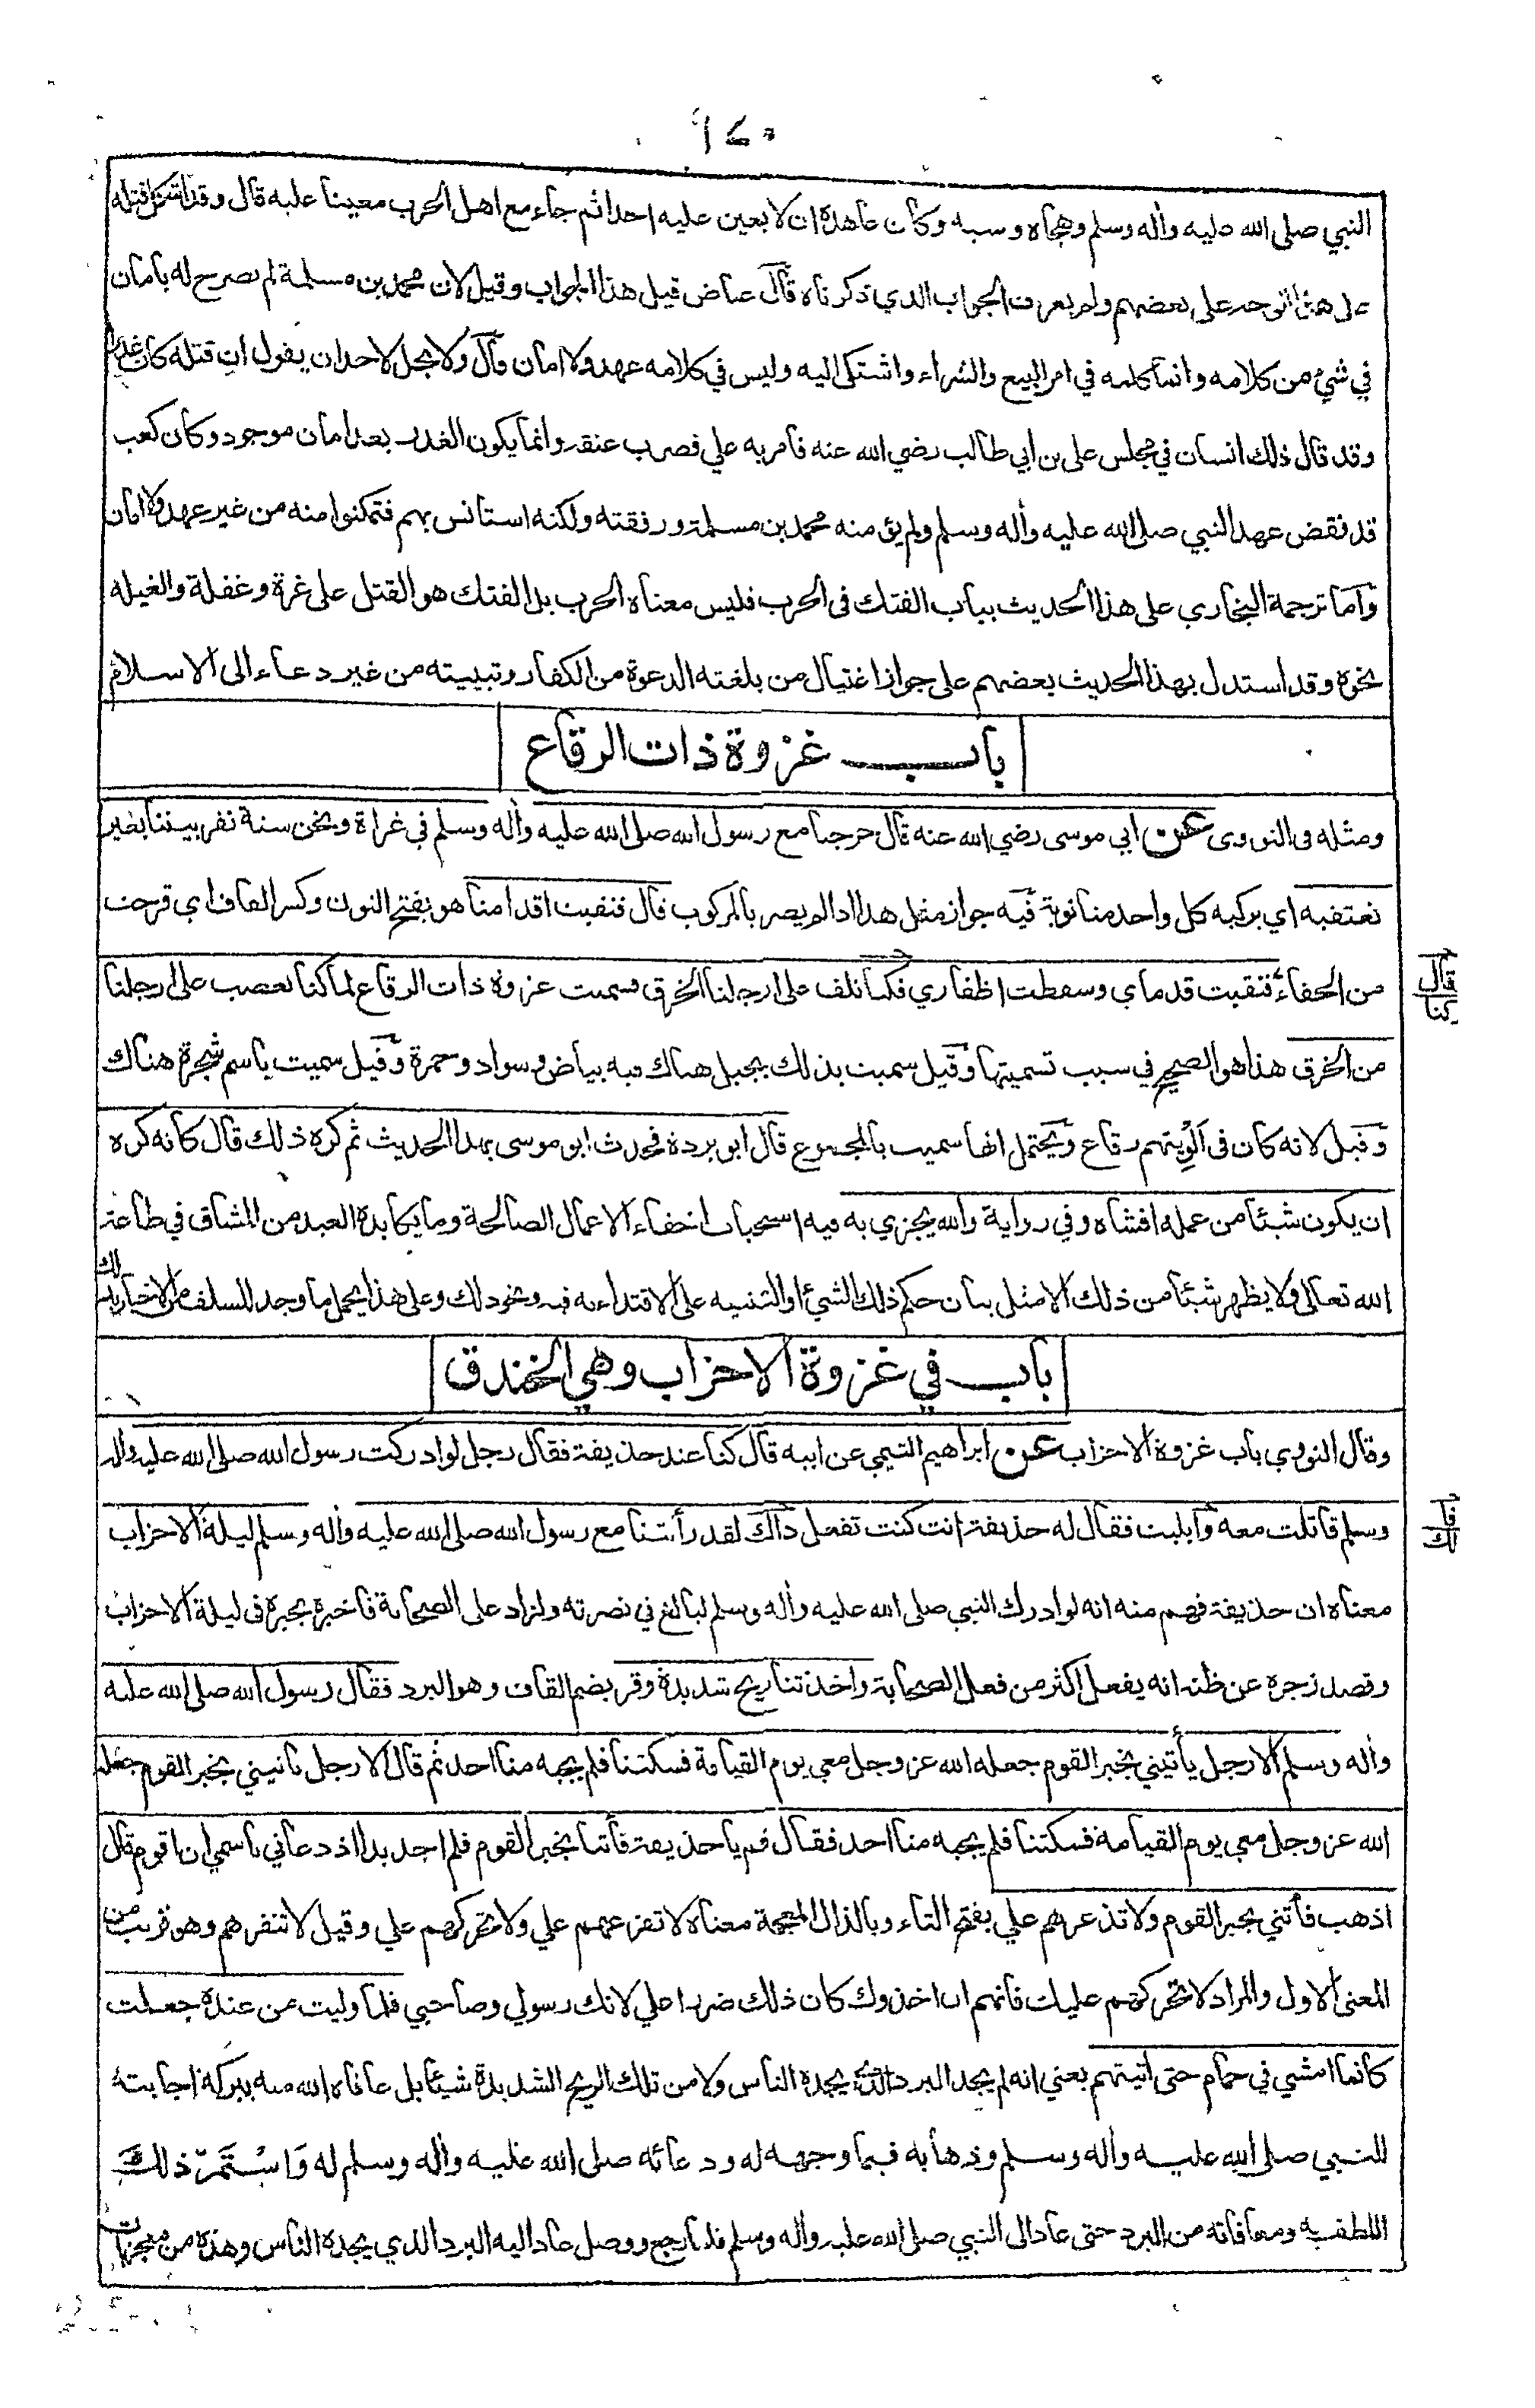 النبي صلى الله عليه وأله وسلم وهجاه وسبه وكان عاهده ان لا يعين عليه احدا ثم جاء مع اهل الحرب معينا عليه قال وقد اشكل قتله
على هذا الوجه على بعضهم ولم يعرف الجواب الذي ذكرناه قال عياض قيل هذا الجواب وقيل لان محمد بن مسلمة لم يصرح له بأمان
في شيء من كلامه وانما كلمه في امر البيع والشراء واشتكى اليه وليس في كلامه عهد ولا امان قال ولا يحل لاحد ان يقول ان قتله كان غدرا
وقد قال ذلك انسان في مجلس علي بن أبي طالب رضي الله عنه فأمر به علي فضرب عنقه وانما يكون الغدر بعد امان موجود وكان كعب
قد نقض عهد النبي صلى الله عليه وأله وسلم ولم يؤمنه محمد بن مسلمة ورفقته ولكنه استأنس بهم فتمكنوا منه من غير عهد ولا امان
وأما ترجمة البخاري على هذا الحديث بباب الفتك في الحرب فليس معناه الحرب بل الفتك هو القتل على غرة وغفلة والغيلة
نحوه وقد استدل بهذا الحديث بعضهم على جواز اغتيال من بلغته الدعوة من الكفار وتبييته من غير دعاء الى الاسلام
باب غزوة ذات الرقاع
ومثله في النووي عن أبي موسى رضي الله عنه قال خرجنا مع رسول الله صلى الله عليه وأله وسلم في غزاة ونحن ستة نفر بيننا بعير
نعتقبه اي يركبه كل واحد منا نوبة فيه جواز مثل هذا اذا لم يضر بالمركوب قال فنقبت اقدامنا هو بفتح النون وكسر القاف اي قرحت
من الحفاء فنقبت قدماي وسقطت اظفاري فكنا نلف على ارجلنا الخرق فسميت غزوة ذات الرقاع لما كنا نعصب على ارجلنا
قال
كنا
من الخرق هذا هو الصحيح في سبب تسميتها وقيل سميت بذلك بجبل هناك فيه بياض وسواد وحمرة وقيل سميت باسم شجرة هناك
وقيل لانه كان في ألويتهم رقاع ويحتمل انها سميت بالمجموع قال ابو بردة فحدث ابو موسى بهذا الحديث ثم كره ذلك قال كأنه كره
ان يكون شيئا من عمله افشاه وفي رواية والله يجزي به فيه استحباب اخفاء الاعمال الصالحة وما يكابده العبد من المشاق في طاعة
الله تعالى ولا يظهر شيئا من ذلك الا مثل بيان حكم ذلك الشيء او التنبيه على الاقتداء به فيه ونحو ذلك وعلى هذا يحمل ما وجد للسلف من الاخبار بذلك
باب في غزوة الاحزاب وهي الخندق
وقال النووي باب غزوة الاحزاب عن ابراهيم التيمي عن ابيه قال كنا عند حذيفة فقال رجل لو ادركت رسول الله صلى الله عليه وأله
وسلم قاتلت معه وأبليت فقال له حذيفة انت كنت تفعل ذاك لقد رأيتنا مع رسول الله صلى الله عليه وأله وسلم ليلة الاحزاب
معناه ان حذيفة فهم منه انه لو ادرك النبي صلى الله عليه وأله وسلم لبالغ في نصرته ولزاد على الصحابة فأخبره بخبره في ليلة الاحزاب
وقصد زجره عن ظنه انه يفعل اكثر من فعل الصحابة واخذتنا ريح شديدة وقر بضم القاف وهو البرد فقال رسول الله صلى الله عليه
وأله وسلم ألا رجل يأتيني بخبر القوم جعله الله عز وجل معي يوم القيامة فسكتنا فلم يجبه منا احد ثم قال ألا رجل يأتيني بخبر القوم جعله
الله عز وجل معي يوم القيامة فسكتنا فلم يجبه منا احد فقال قم يا حذيفة فأتنا بخبر القوم فلم اجد بدا اذ دعاني باسمي ان اقوم قال
اذهب فأتني بخبر القوم ولا تذعرهم علي بفتح التاء وبالذال المعجمة معناه لا تفزعهم علي ولا تحركهم علي وقيل لا تنفرهم وهو قريب من
المعنى الاول والمراد لا تحركهم عليك فانهم ان اخذوك كان ذلك ضررا علي لانك رسولي وصاحبي فلما وليت من عنده جعلت
كأنما امشي في حمام حتى اتيتهم يعني انه لم يجد البرد الذي يجده الناس ولا من تلك الريح الشديدة شيئا بل عافاه الله منه ببركة اجابته
للنبي صلى الله عليه وأله وسلم وذهابه فيما وجهه له ودعائه صلى الله عليه وأله وسلم له واستمر ذلك
اللطف به ومعافاته من البرد حتى عاد الى النبي صلى الله عليه وأله وسلم فلما رجع ووصل عاد اليه البرد الذي يجده الناس وهذه من معجزات